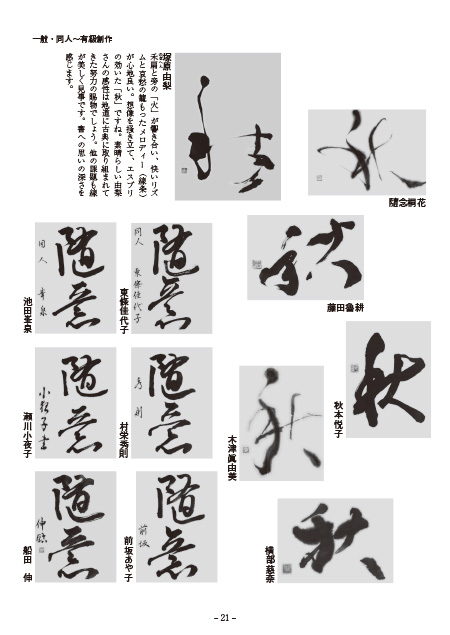 一般・同人～有級創作
塚原由梨
禾扁と旁の「火」が響き合い、快いリズ
ムと哀愁の籠もったメロディー（線条）
が心地良い。想像を掻き立て、エスプリ
の効いた「秋」ですね。素晴らしい由梨
さんの感性は地道に古典に取り組まれて
きた努力の賜物でしょう。他の課題も線
が美しく見事です。書への思いの深さを
感じます。
秋
秋
隨念桐花
秋
藤田魯耕
秋
秋本悦子
秋
木津眞由美
秋
横部慈奈
隨意
同人 東條佳代子
東條佳代子
隨意
同人 峯泉
池田峯泉
隨意
秀則
村栄秀則
隨意
小夜子書
瀬川小夜子
隨意
前坂
前坂あや子
隨意
船田 伸
－21－